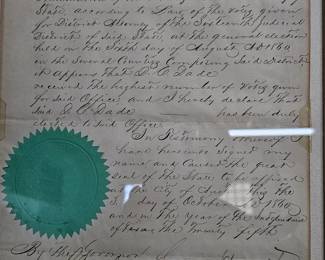 State, according to Law of the votes given
for District Attorney of the Sixteenth Judicial
District of said State, at the general election
held on the Sixth day of August AD 1860
in the several Counties Composing said District
it appears that D. C. Dade
received the highest number of votes given
for said Office and I hereby declare that
said D. C. Dade has been duly
elected to said Office
In Testimony whereof I
have hereunto signed my
name and Caused the great
seal of the State to be affixed
at the City of the
day of October 1860
and in the Year of the Independence
of Texas the Twenty fifth
By the Governor